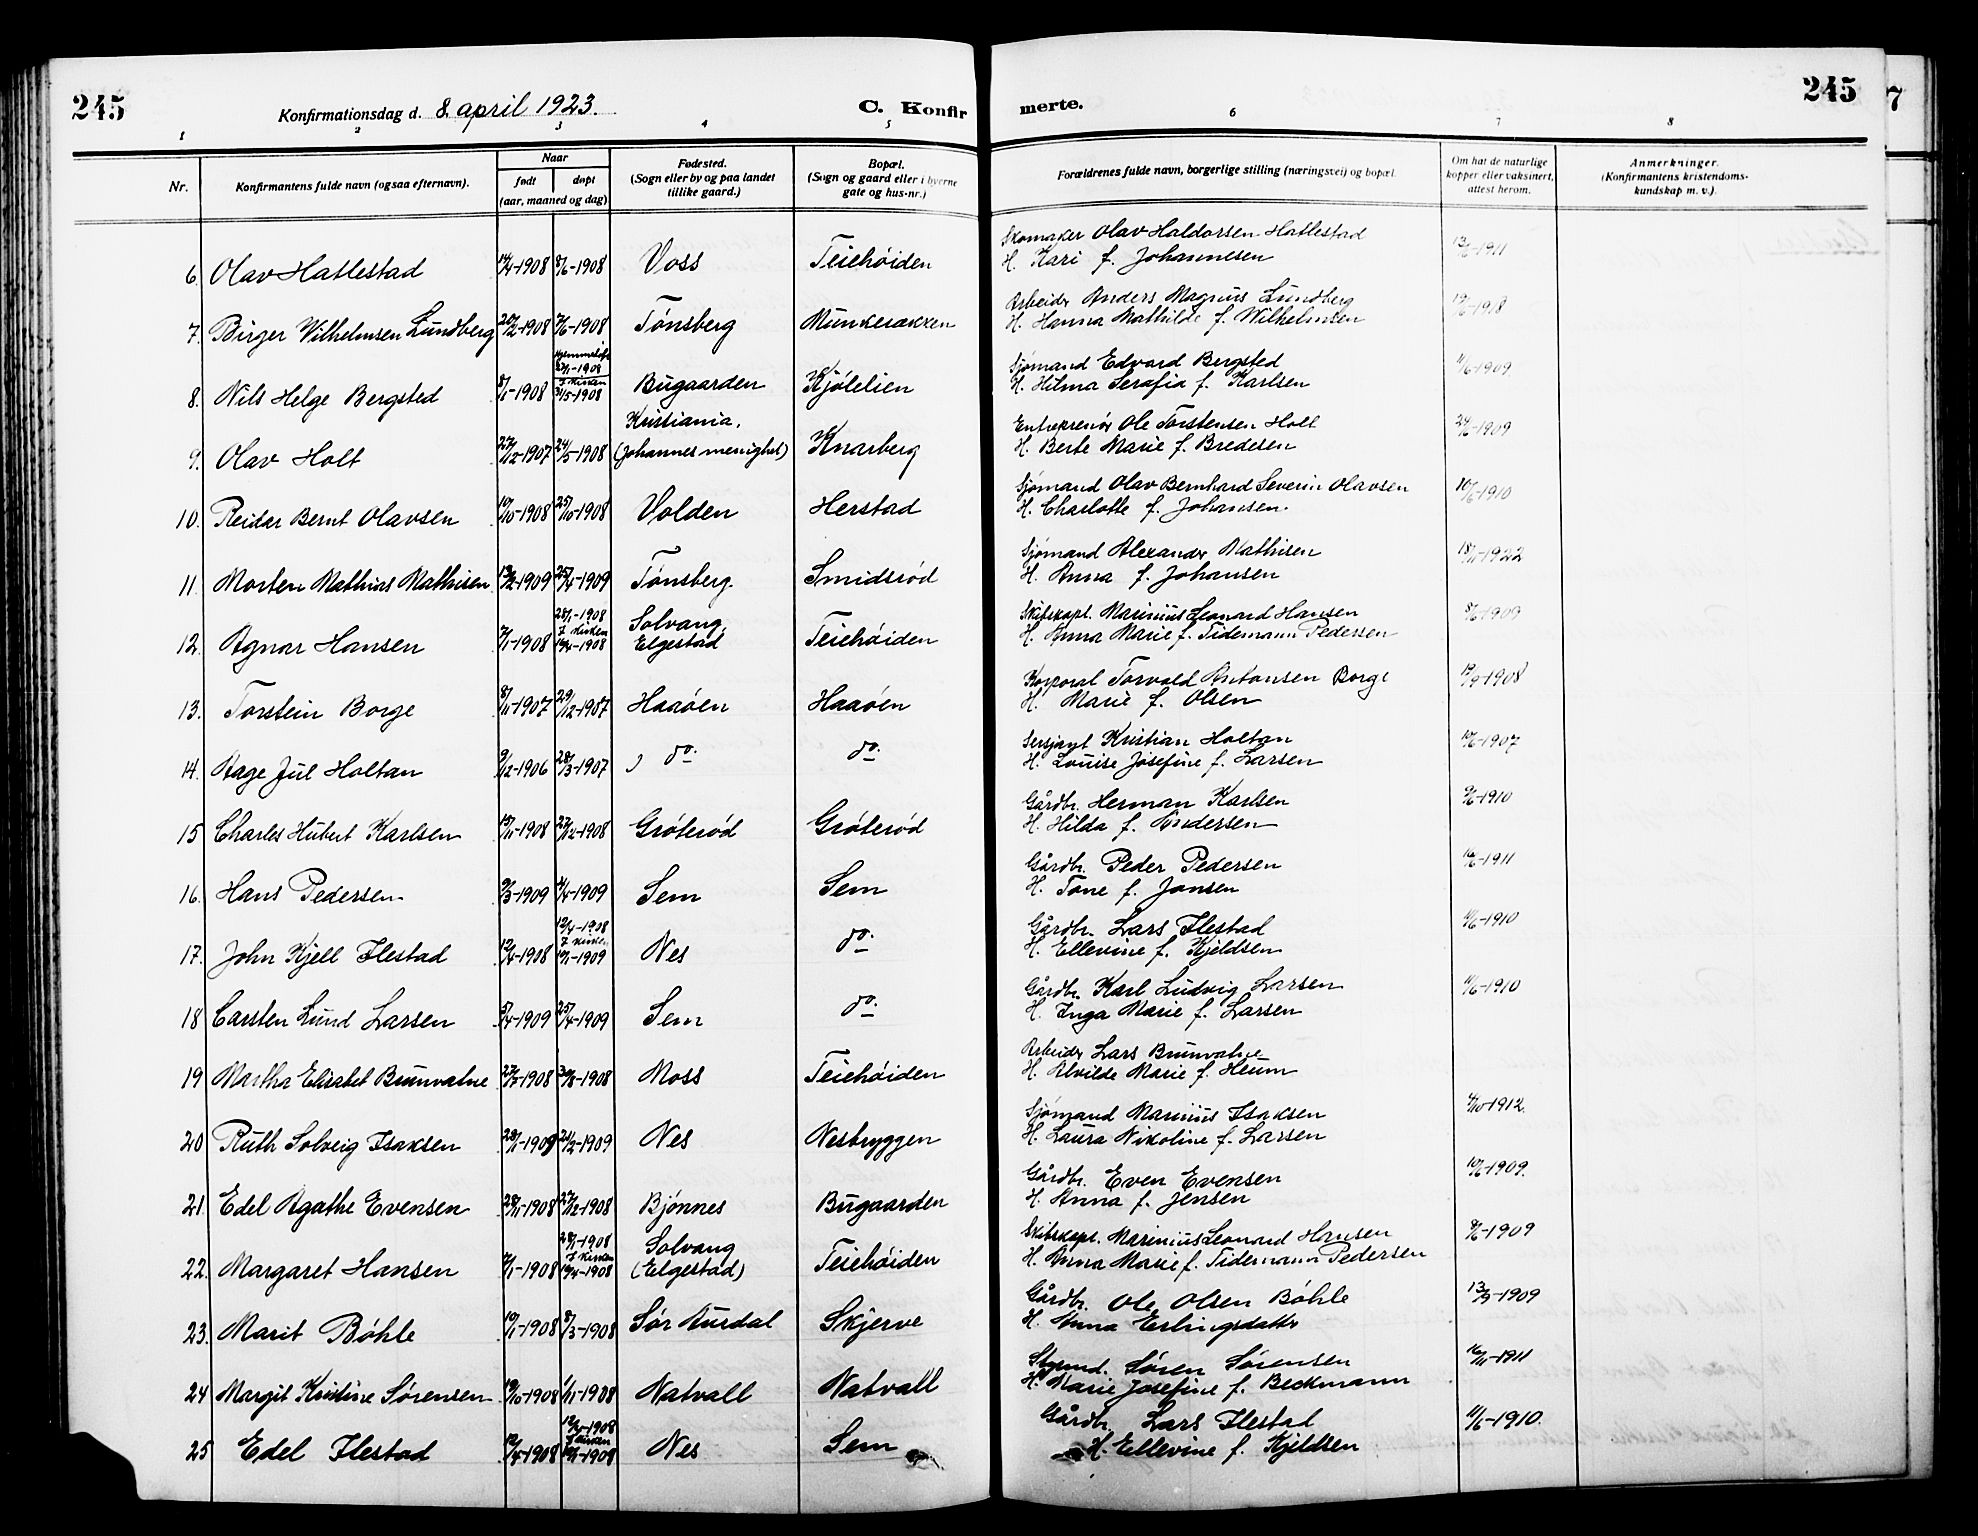 245
Konfirmationsdag d. 8. april 1923.
C. Konfir
merte.
245
1 2 3 4 5 6 7 8
Nr.
Konfirmantens fulde navn (ogsaa efternavn).
Naar
født døpt
(aar, maaned og dag)
Fødested.
(Sogn eller by og paa landet
tillike gaard.)
Bopæl.
(Sogn og gaard eller i byerne
gate og hus-nr.)
Forældrenes fulde navn, borgerlige stilling (næringsvei) og bopæl.
Om hat de naturlige
kopper eller vaksinert,
attest herom.
Anmerkninger.
(Konfirmantens kristendoms-
kundskap m. v.)
6. Olav Hatlestad 14/4-1908 8/6-1908 Voss Teiehøiden
Skomaker Olav Haldorsen Hatlestad
H. Kari f. Johannesen
7. Birger Wilhelmsen Lundberg 1908 7/6-1908 Tønsberg Munkerækken
Arbeider Anders Magnus Lundberg
H. Hanna Mathilde f. Wilhelmsen
8. Nils Helge Bergsted 8/1-1908 hjemmedøpt 1908 I kirken 31/5-1908 Bugaarden Kjølelien
Sjømand Edvard Bergsted 1909
H. Hilma Serafia f. Karlsen
9. Olav Holt 27/12-1907 24/5-1908 Kristiania, (Johannes menighet) Knarberg
Entreprenør Ole Torstensen Holt 1909
H. Berte Marie f. Bredesen
10. Reidar Bernt Olavsen 10/10-1908 25/10-1908 Volden Herstad
Sjømand Olav Bernhard Severin Olavsen 10/6-1910
H. Charlotte f. Johansen.
11. Morten Mathias Mathisen 13/2-1909 25/4-1909 Tønsberg Smidsrød
Sjømand Alexander Mathisen 1922
H. Anna f. Johansen
12. Agnar Hansen 7/1-1908 28/1-1908 I kirken 19/4-1908 Solvang, Elgestad Teiehøiden
Skibskapt. Marinius Leonard Hansen 8/6-1909
H. Anna Marie f. Tidemann Pedersen
13. Torstein Borge 8/11-1907 29/12-1907 Haaøen Haaøen
Korporal Torvald Antonsen Borge 1908
H. Marie f. Olsen
14. Aage Jul Holtan 9/12-1906 28/3-1907 do. do.
Sersjant Kristian Holtan 1907
H. Louise Josefine f. Larsen
15 Charles Hubert Karlsen 15/11-1908 27/12-1908 Grøterød Grøterød
Gårdbr. Herman Karlsen 1910
H. Hilda f. Andersen
16. Hans Pedersen 9/3-1909 1909 Sem Sem
Gårdbr. Peder Pedersen 1911
H. Tone f. Jansen
17. John Kjell Ilestad 12/4-1908 12/4-1908 I kirken 1909 Nes do.
Gårdbr. Lars Ilestad 11/6-1910
H. Ellevine f. Kjeldsen
18 Carsten Lund Larsen 5/4-1909 25/4-1909 Sem do.
Gårdbr. Karl Ludvig Larsen 11/6-1910
H. Inga Marie f. Larsen
19 Martha Elisabet Brunvatne 1908 30/8-1908 Moss Teiehøiden
Arbeider Lars Brunvatne
H. Alvilde Marie f. Heum
20 Ruth Solveig Isaksen 28/1-1909 21/2-1909 Nes Nesbryggen
Sjømand Marinius Isaksen 1912.
H. Laura Nikoline f. Larsen
21. Edel Agathe Evensen 28/11-1908 27/12-1908 Bjønnes Bugaarden
Gårdbr. Even Evensen 10/6-1909.
H. Anna f. Jensen
22. Margaret Hansen 7/1-1908 28/1-1908 I kirken 19/4-1908 Solvang (Elgestad) Teiehøiden
Skibskapt. Marinius Leonard Hansen 8/6-1909
H. Anna Marie f. Tidemann Pedersen
23. Marit Bøhle 19/1-1908 8/3-1908 Sør Aurdal Skjerve
Gårdbr. Ole Olsen Bøhle 1909
H. Anna Erlingsdatter
24 Margit Kristine Sørensen 19/10-1908 1/11-1908 Natvall Natvall
Styrmd. Søren Sørensen 1911
H. Marie Josefine f. Beckmann
25 Edel Ilestad 12/4-1908 12/4-1908 I kirken 1908 Nes Sem
Gårdbr. Lars Ilestad 11/6-1910.
H. Ellevine f. Kjeldsen